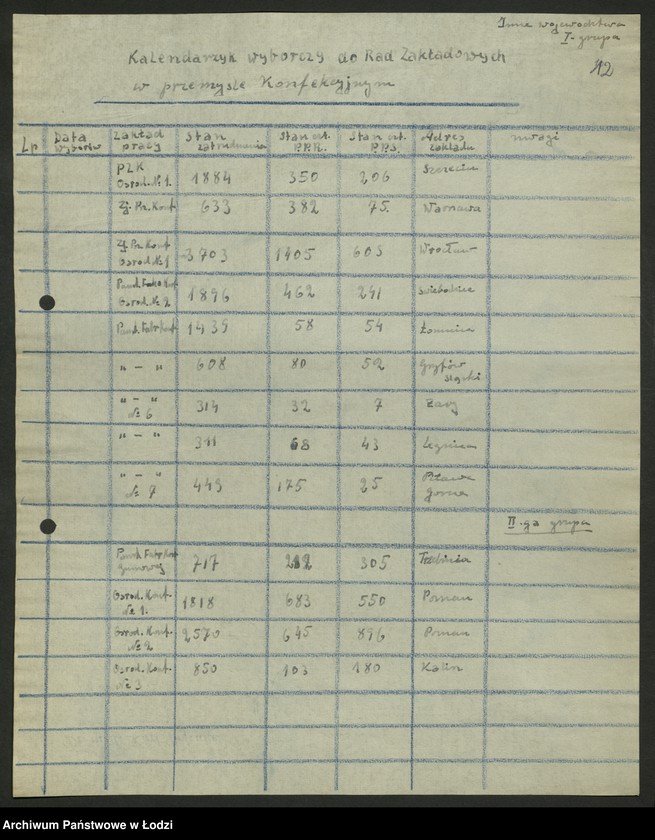 Inne województwa
I-grupa
12
Kalendarzyk wyborczy do Rad Zakładowych
w przemyśle Konfekcyjnym
Lp Data wyborów Zakład pracy Stan zatrudnienia Stan P.P.R. Stan P.P.S. Adres zakładu uwagi
PZK
Osrod. № 1. 1884 350 206 Szczecin
Zj. Pr. Konf 633 382 75. Warszawa
Zj. Pr. Konf
Osrod. № 1 3703 1405 603 Wrocław
Osrod. № 2 1896 462 241 Świebodzice
Pań. Fabr Konf 1439 58 54 Łomnica
„ — „ 608 80 52 Gryfów
śląski
„ — „
№ 6 314 32 7 Żary
„ — „ 311 68 43 Legnica
„ — „
№ 7 449 175 25 Piława
Górna
II-ga grupa
gumowej 717 212 305 Trzebinia
Osrod. Konf.
№ 1. 1818 683 550 Poznań
Osrod. Konf.
№ 2 2570 645 896 Poznań
Osrod. Konf.
№ 3 850 103 180 Kalin
Archiwum Państwowe w Łodzi